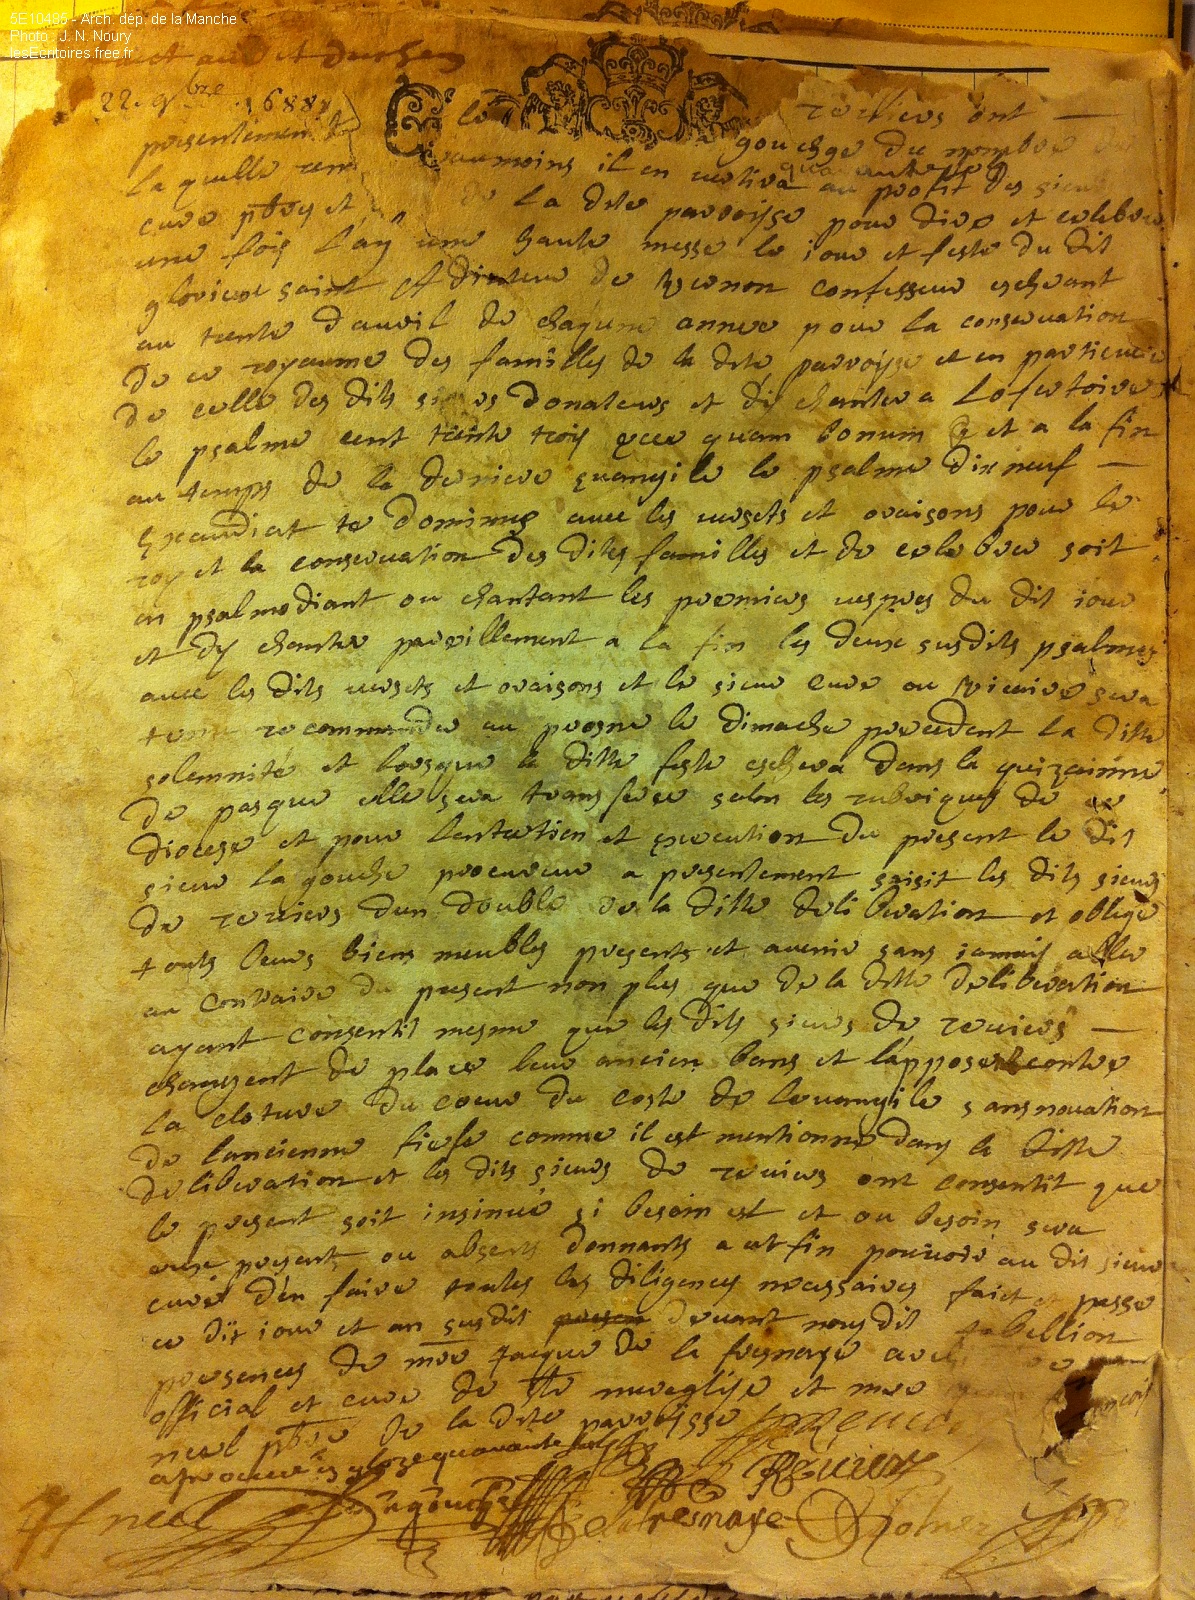 5E10485 - Arch. dép. de la Manche
Photo : J. N. Noury
lesEcritoires.free.fr
22. 9bre 1688
reviers ont
presentement
du nombre
la quelle
aumoins il en restira au profit des sieurs
quarante
curé pbres et de la dite parroisse pour dire et celebrer
une fois l'an une haute messe le iour et feste du dit
glorieux saint Adiuteur de Vernon confesseur escheant
au trente d'avril de chaqune annee pour la conservation
de ce royaume des familles de la dite parroisse et en particulier
de celle des dits sieurs donateurs et d'y chanter a Lofertoire
le psalme cent trente trois ecce quam bonum et a la fin
au temps de la derniere evangile le psalme dix neuf
Exaudiat te dominus avec les versets et oraisons pour le
roy et la conservation des dites familles et de celebrer soit
en psalmodiant ou chantant les premieres vespres du dit iour
et d'y chanter pareillement a la fin les deux susdits psalmes
avec les dits versets et oraisons et le sieur curé ou vicaire sera
tenu recommander au prosne le dimache precedent la ditte
solemnité et lorsque la ditte feste eschera dans la quizainne
de pasque elle sera transferee selon les rubriques de ce
diocese et pour lentretien et execution du present le dit
sieur la gouche procureur a presentement saisit les dits sieurs
de reviers dun double de la ditte deliberation et oblige
touts leurs biens meubles presents et avenir sans iamais aller
au contraire du present non plus que de la ditte deliberation
ayant consentit mesme que les dits sieurs de reviers
changent de place leur ancien banc et l'apposer contre
la cloture du coeur du costé de levangile sans novation
de lancienne fiefe comme il est mentionné dans la ditte
deliberation et les dits sieurs de reviers ont consentit que
le present soit insinué si besoin est et ou besoin sera
eux presents ou absents donnants a cet fin pouvoir au dit sieur
curé d'en faire toutes les diligences necessaires fait et passé
ce dit iour et an susdit devant nous dit tabellion
presences de mre Jacque de la fresnaye
official et curé de Ste mereglise et mre
neel pbre de la dite parroisse
aprouvé en gloze quarante
Reviers
Neel
Lagouche
de la Fresnaye